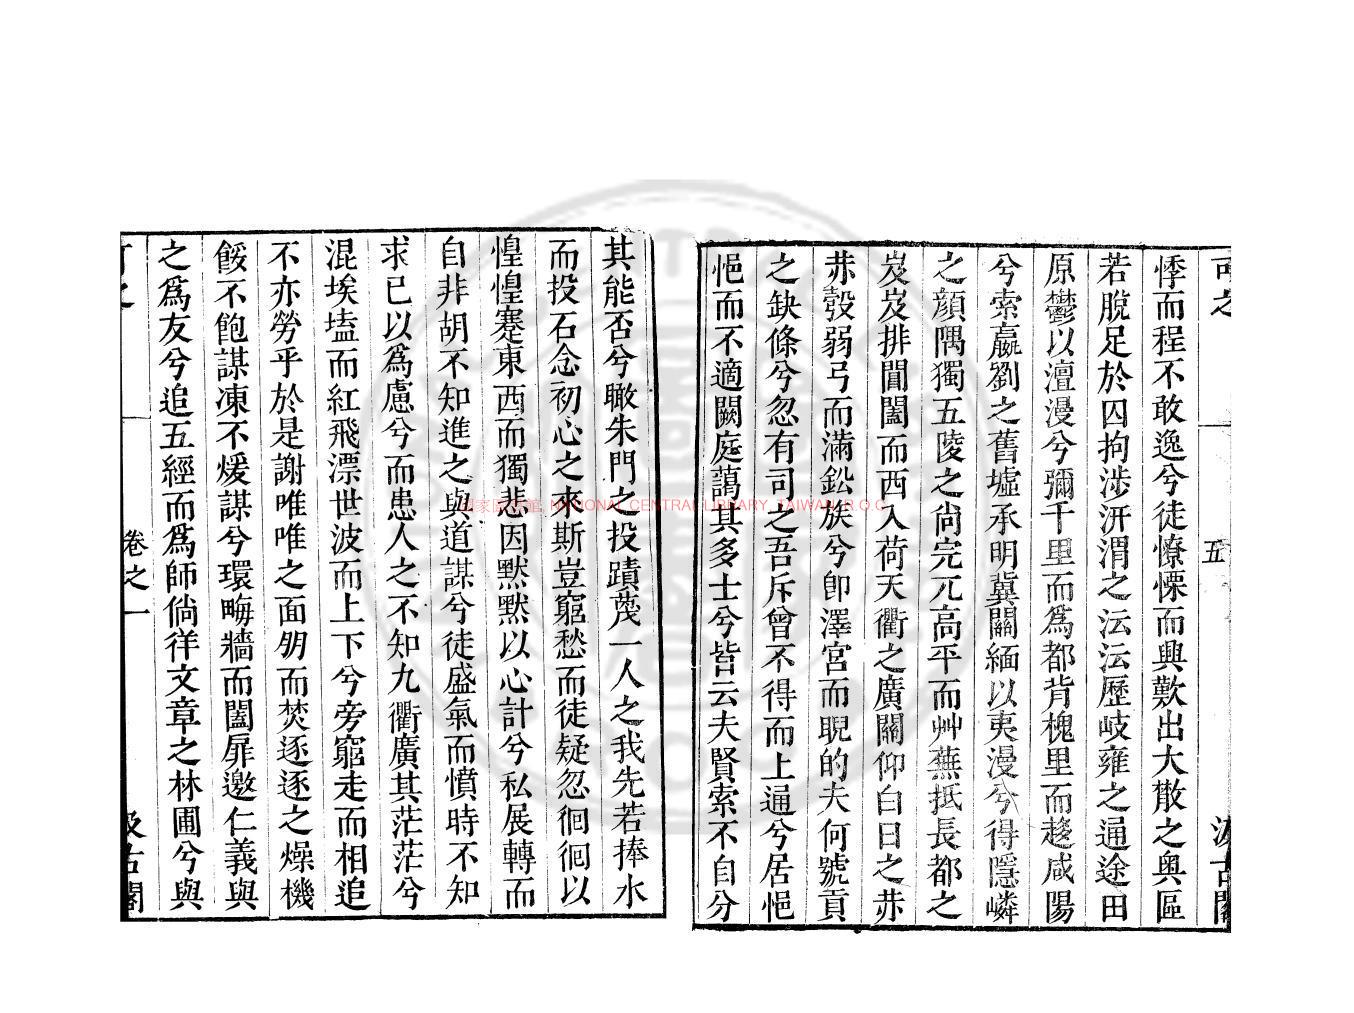 可之 五 汲古閣
悸而程不敢逸兮徒憭慄而興歎出大散之奥區
若脫足於囚拘涉汧渭之沄沄歷岐雍之通途田
原鬱以澶漫兮彌千里而爲都背槐里而趍咸陽
兮索嬴劉之舊墟承明冀闕緬以夷漫兮得隱嶙
之頽隅獨五陵之尙完兀高平而艸蕪抵長都之
岌岌排閶闔而西入荷天衢之廣闢仰白日之赫
赫彀弱弓而滿鈆族兮卽澤宮而睨的夫何號貢
之缺條兮忽有司之吾斥曾不得而上通兮居悒
悒而不適闕庭藹其多士兮皆云夫賢索不自分
其能否兮瞰朱門之投蹟蔑一人之我先若捧水
而投石念初心之來斯豈窮愁而徒疑忽徊徊以
惶惶蹇東西而獨悲因默默以心計兮私展轉而
自非胡不知進之與道謀兮徒盛氣而憤時不知
求已以爲慮兮而患人之不知九衢廣其茫茫兮
混埃壒而紅飛漂世波而上下兮旁窮走而相追
不亦勞乎於是謝唯唯之面朋而焚逐逐之燥機
餒不飽謀凍不煖謀兮環畮牆而闔扉邀仁義與
之爲友兮追五經而爲師倘徉文章之林圃兮與
可之 卷之一 汲古閣
國家圖書館, NATIONAL CENTRAL LIBRARY, TAIWAN, R.O.C